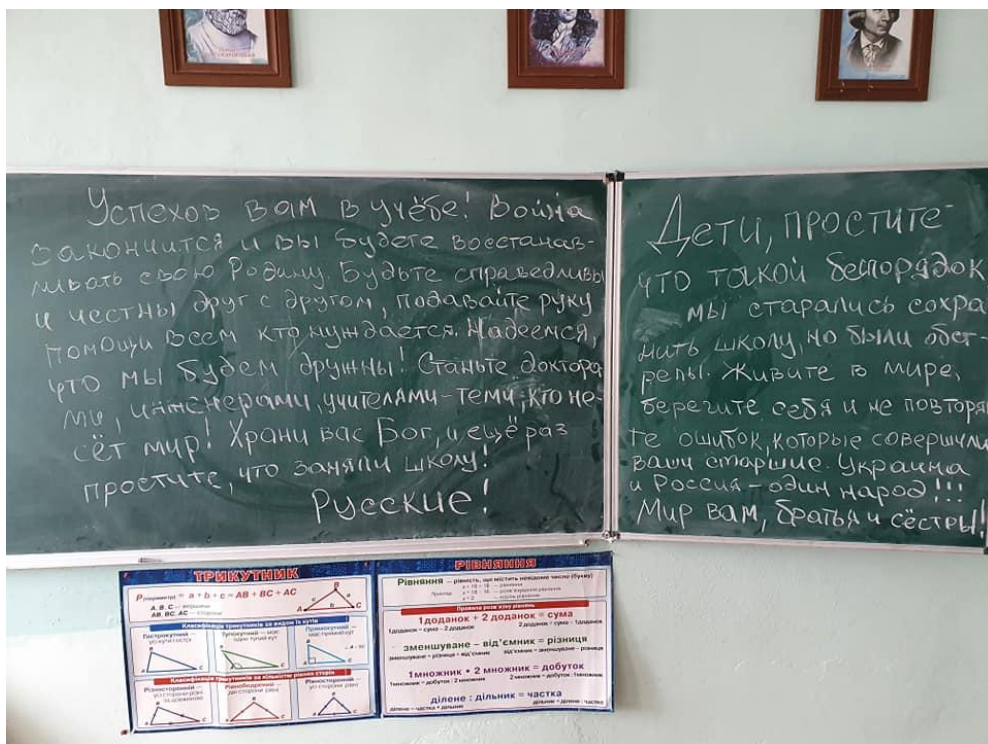 Успехов вам в учёбе! Война
закончится и вы будете восстанав-
ливать свою Родину. Будьте справедливы
и честны друг с другом, подавайте руку
помощи всем кто нуждается. Надеемся,
что мы будем дружны! Станьте доктора
ми, инженерами, учителями - теми, кто не-
сёт мир! Храни вас Бог, и ещё раз
простите, что заняли школу!
Русские!
Дети, простите
что такой беспорядок
мы старались сохра
нить школу, но были обст-
релы. Живите в мире,
берегите себя и не повторяй
те ошибок, которые совершили
ваши старшие. Украина
и Россия - один народ!!!
Мир вам, братья и сёстры!
ТРИКУТНИК
P(периметр) = a + b + c = AB + BC + AC
A, B, C — вершини
AB, BC, AC — сторони
Класифікація трикутників за видом їх кутів
Гострокутний —
усі кути гострі
Тупокутний — має
один тупий кут
Прямокутний —
має прямий кут
Класифікація трикутників за кількістю рівних сторін
Різносторонній —
усі сторони різні
за довжиною
Рівнобедрений —
дві сторони рівні
Рівносторонній —
усі сторони рівні
РІВНЯННЯ
Рівняння — рівність, що містить невідоме число (букву)
Приклад:
Правила розв'язку рівнянь
1доданок + 2 доданок = сума
1доданок = сума - 2 доданок
2 доданок = сума - 1доданок
зменшуване – від'ємник = різниця
зменшуване = різниця + від'ємник
від'ємник = зменшуване - різниця
1множник • 2 множник = добуток
1множник = добуток : 2 множник
2 множник = добуток : 1множник
ділене : дільник = частка
ділене = частка • дільник
дільник = ділене : частка